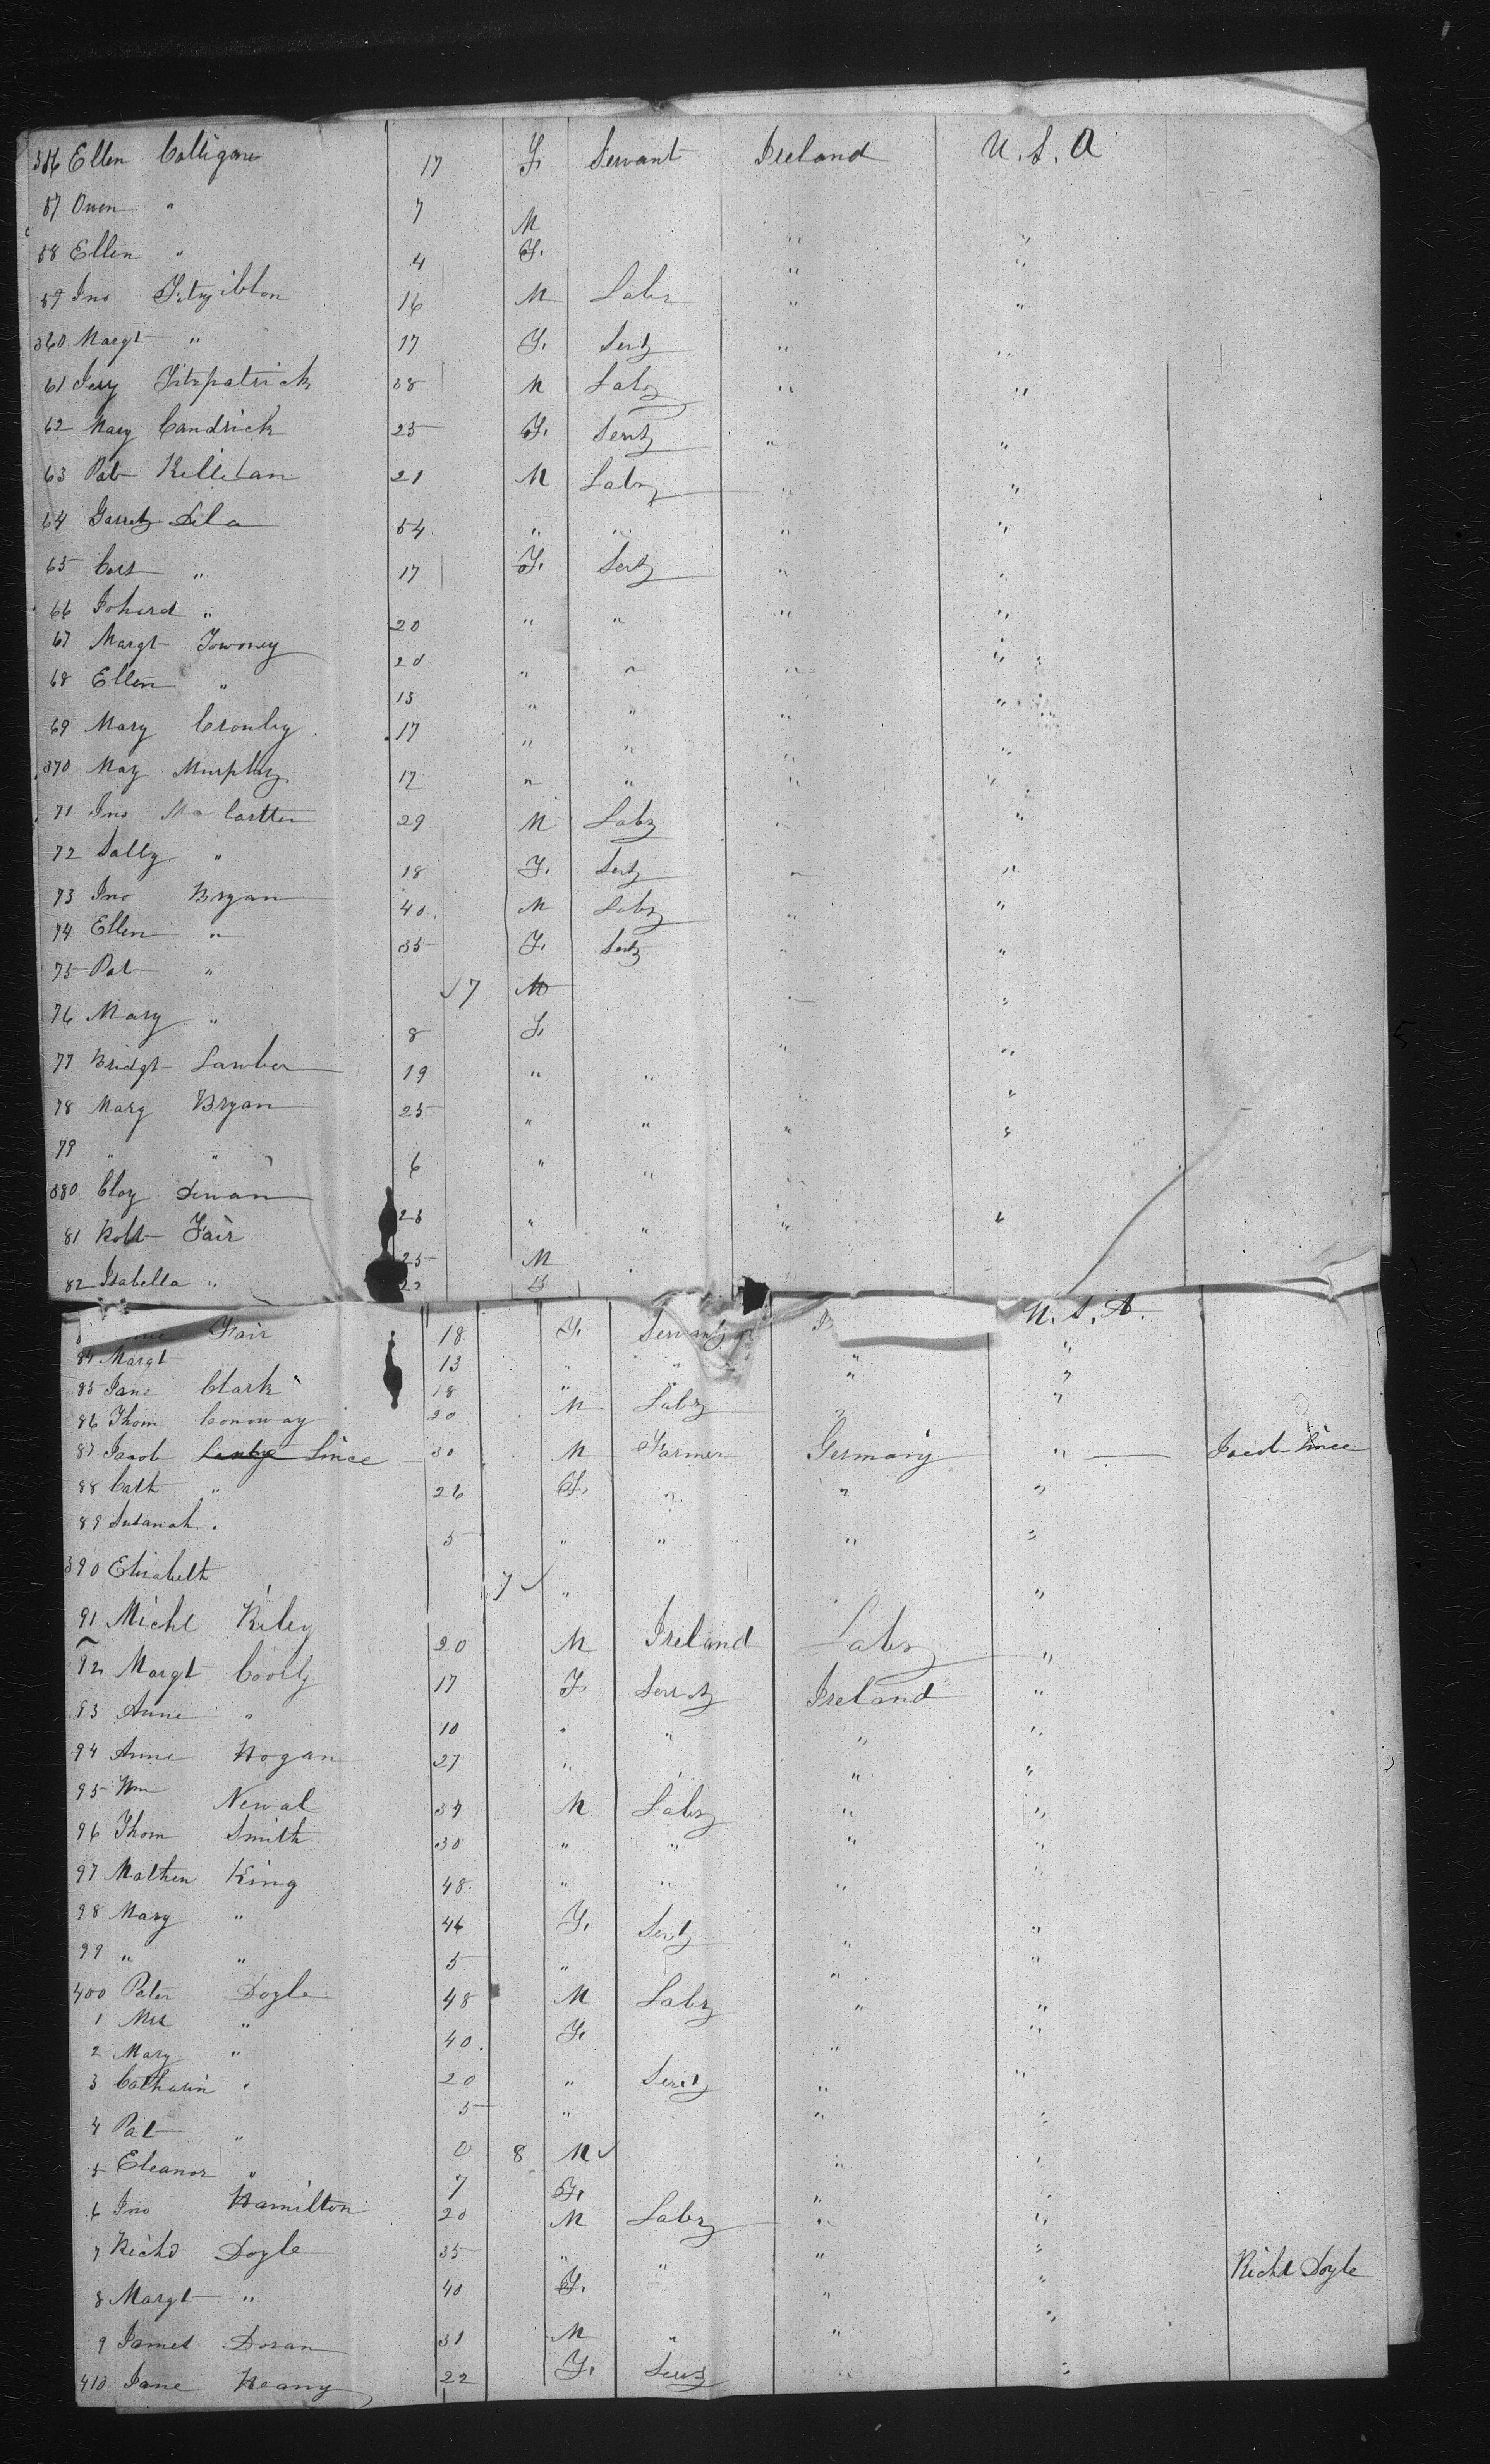 356 Ellen Colligan 17 F. Servant Ireland U.S.A
57 Owen " 7 M " "
58 Ellen " 4 F. " "
59 Jno Fitzgibbon 16 M Labr " "
360 Margt " 17 F. Sert " "
61 Jery Fitzpatrick 38 M Labr " "
62 Mary Candrick 25 F. Sert " "
63 Pat Killilan 21 M Labr " "
64 Garret 54 " " " "
65 " 17 F. Sert " "
66 " 20 " " " "
67 Margt Towoney 20 " " " "
68 Ellen " 13 " " " "
69 Mary Cronley 17 " " " "
370 May Murphy 17 " " " "
71 Jno Mc Cartten 29 M Labr " "
72 Sally " 18 F. Sert " "
73 Jno Bryan 40 M Labr " "
74 Ellen " 35 F. Sert " "
75 Pat " 7 M " "
76 Mary " 8 F. " "
77 Bridgt Lawber 19 " " " "
78 Mary Bryan 25 " " " "
79 " " 6 " " " "
380 " " " "
81 Robt Fair 25 M
82 Isabella " 22
Fair 18 F. Servant U.S.A.
84 Margt 13 " " " "
85 Jane Clark 18 " " " "
86 Thom Conoway 20 M Labr " "
87 Jacob Lince 30 M Farmer Germany " Jacob Lince
88 Cath " 26 F. " " "
89 Susanah " 5 " " " "
390 Elisabeth 7 " "
91 Michl Riley 20 M Ireland Labr "
92 Margt 17 F. Servt Ireland "
93 Anne " 10 " " " "
94 Anne Hogan 27 " " " "
95 Wm Newal 37 M Labr " "
96 Thom Smith 30 " " " "
97 Mathew King 48 " " " "
98 Mary " 46 F. Sert " "
99 " " 5 " " "
400 Peter Doyle 48 M Labr " "
1 Mrs " 40 F. " "
2 Mary " 20 " Sert " "
3 Catharin " 5 " " "
4 Pat " 0 8 M " "
5 Eleanor " 7 F. " "
6 Jno Hamilton 20 M Labr " "
7 Richd Doyle 35 " " " " Richd Doyle
8 Margt " 40 F. " "
9 James Doran 31 M " " "
410 Jane Heany 22 F. Sert " "